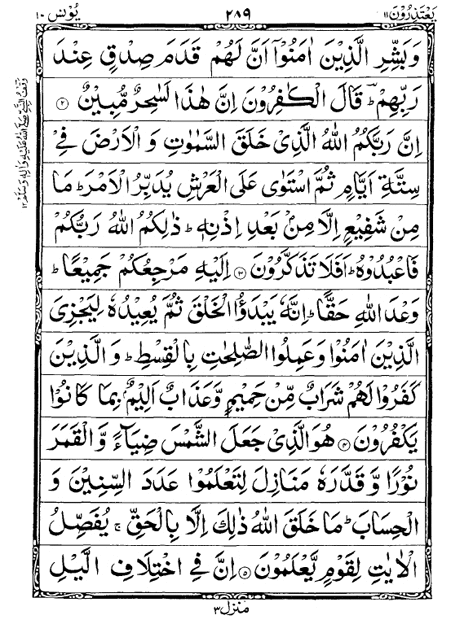 یعتذرون ۱۱ ۲۸۹ یونس ۱۰
وَبَشِّرِ الَّذِیْنَ اٰمَنُوْۤا اَنَّ لَهُمْ قَدَمَ صِدْقٍ عِنْدَ
رَبِّهِمْ ؕ قَالَ الْكٰفِرُوْنَ اِنَّ هٰذَا لَسٰحِرٌ مُّبِیْنٌ ۲
اِنَّ رَبَّكُمُ اللّٰهُ الَّذِیْ خَلَقَ السَّمٰوٰتِ وَ الْاَرْضَ فِیْ
سِتَّةِ اَیَّامٍ ثُمَّ اسْتَوٰی عَلَی الْعَرْشِ یُدَبِّرُ الْاَمْرَ ؕ مَا
مِنْ شَفِیْعٍ اِلَّا مِنْۢ بَعْدِ اِذْنِهٖ ؕ ذٰلِكُمُ اللّٰهُ رَبُّكُمْ
فَاعْبُدُوْهُ ؕ اَفَلَا تَذَكَّرُوْنَ ۳ اِلَیْهِ مَرْجِعُكُمْ جَمِیْعًا ؕ
وَعْدَ اللّٰهِ حَقًّا ؕ اِنَّهٗ یَبْدَؤُا الْخَلْقَ ثُمَّ یُعِیْدُهٗ لِیَجْزِیَ
الَّذِیْنَ اٰمَنُوْا وَ عَمِلُوا الصّٰلِحٰتِ بِالْقِسْطِ ؕ وَ الَّذِیْنَ
كَفَرُوْا لَهُمْ شَرَابٌ مِّنْ حَمِیْمٍ وَّ عَذَابٌ اَلِیْمٌۢ بِمَا كَانُوْا
یَكْفُرُوْنَ ۴ هُوَ الَّذِیْ جَعَلَ الشَّمْسَ ضِیَآءً وَّ الْقَمَرَ
نُوْرًا وَّ قَدَّرَهٗ مَنَازِلَ لِتَعْلَمُوْا عَدَدَ السِّنِیْنَ وَ
الْحِسَابَ ؕ مَا خَلَقَ اللّٰهُ ذٰلِكَ اِلَّا بِالْحَقِّ ۚ یُفَصِّلُ
الْاٰیٰتِ لِقَوْمٍ یَّعْلَمُوْنَ ۵ اِنَّ فِی اخْتِلَافِ الَّیْلِ
منزل ۳